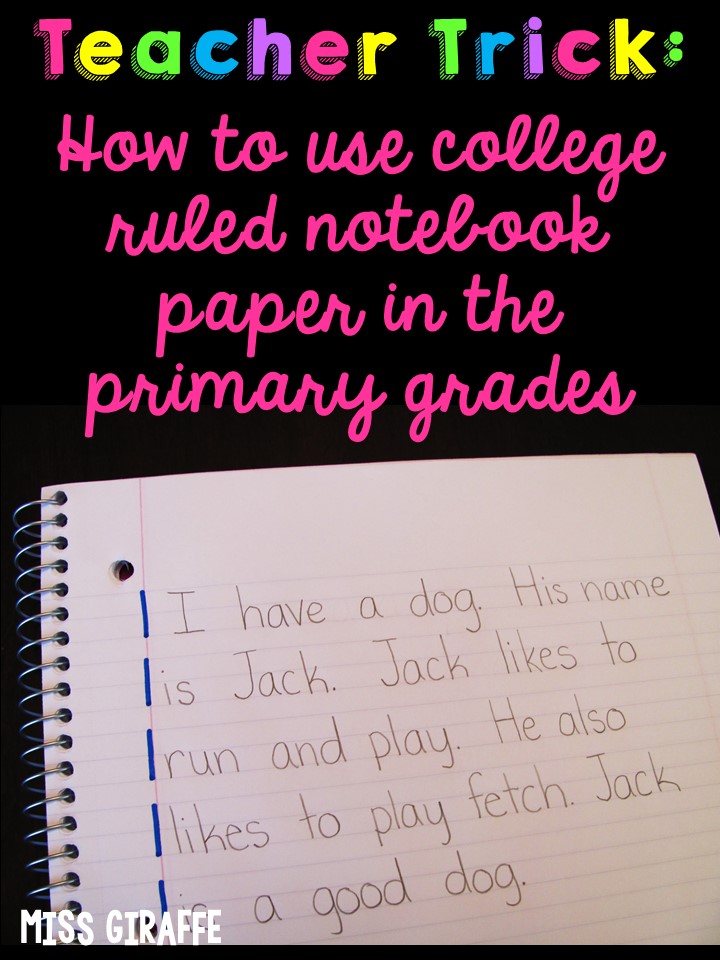 Teacher Trick:
How to use college
ruled notebook
paper in the
primary grades
I have a dog. His name
is Jack. Jack likes to
run and play. He also
likes to play fetch. Jack
is a good dog.
MISS GIRAFFE